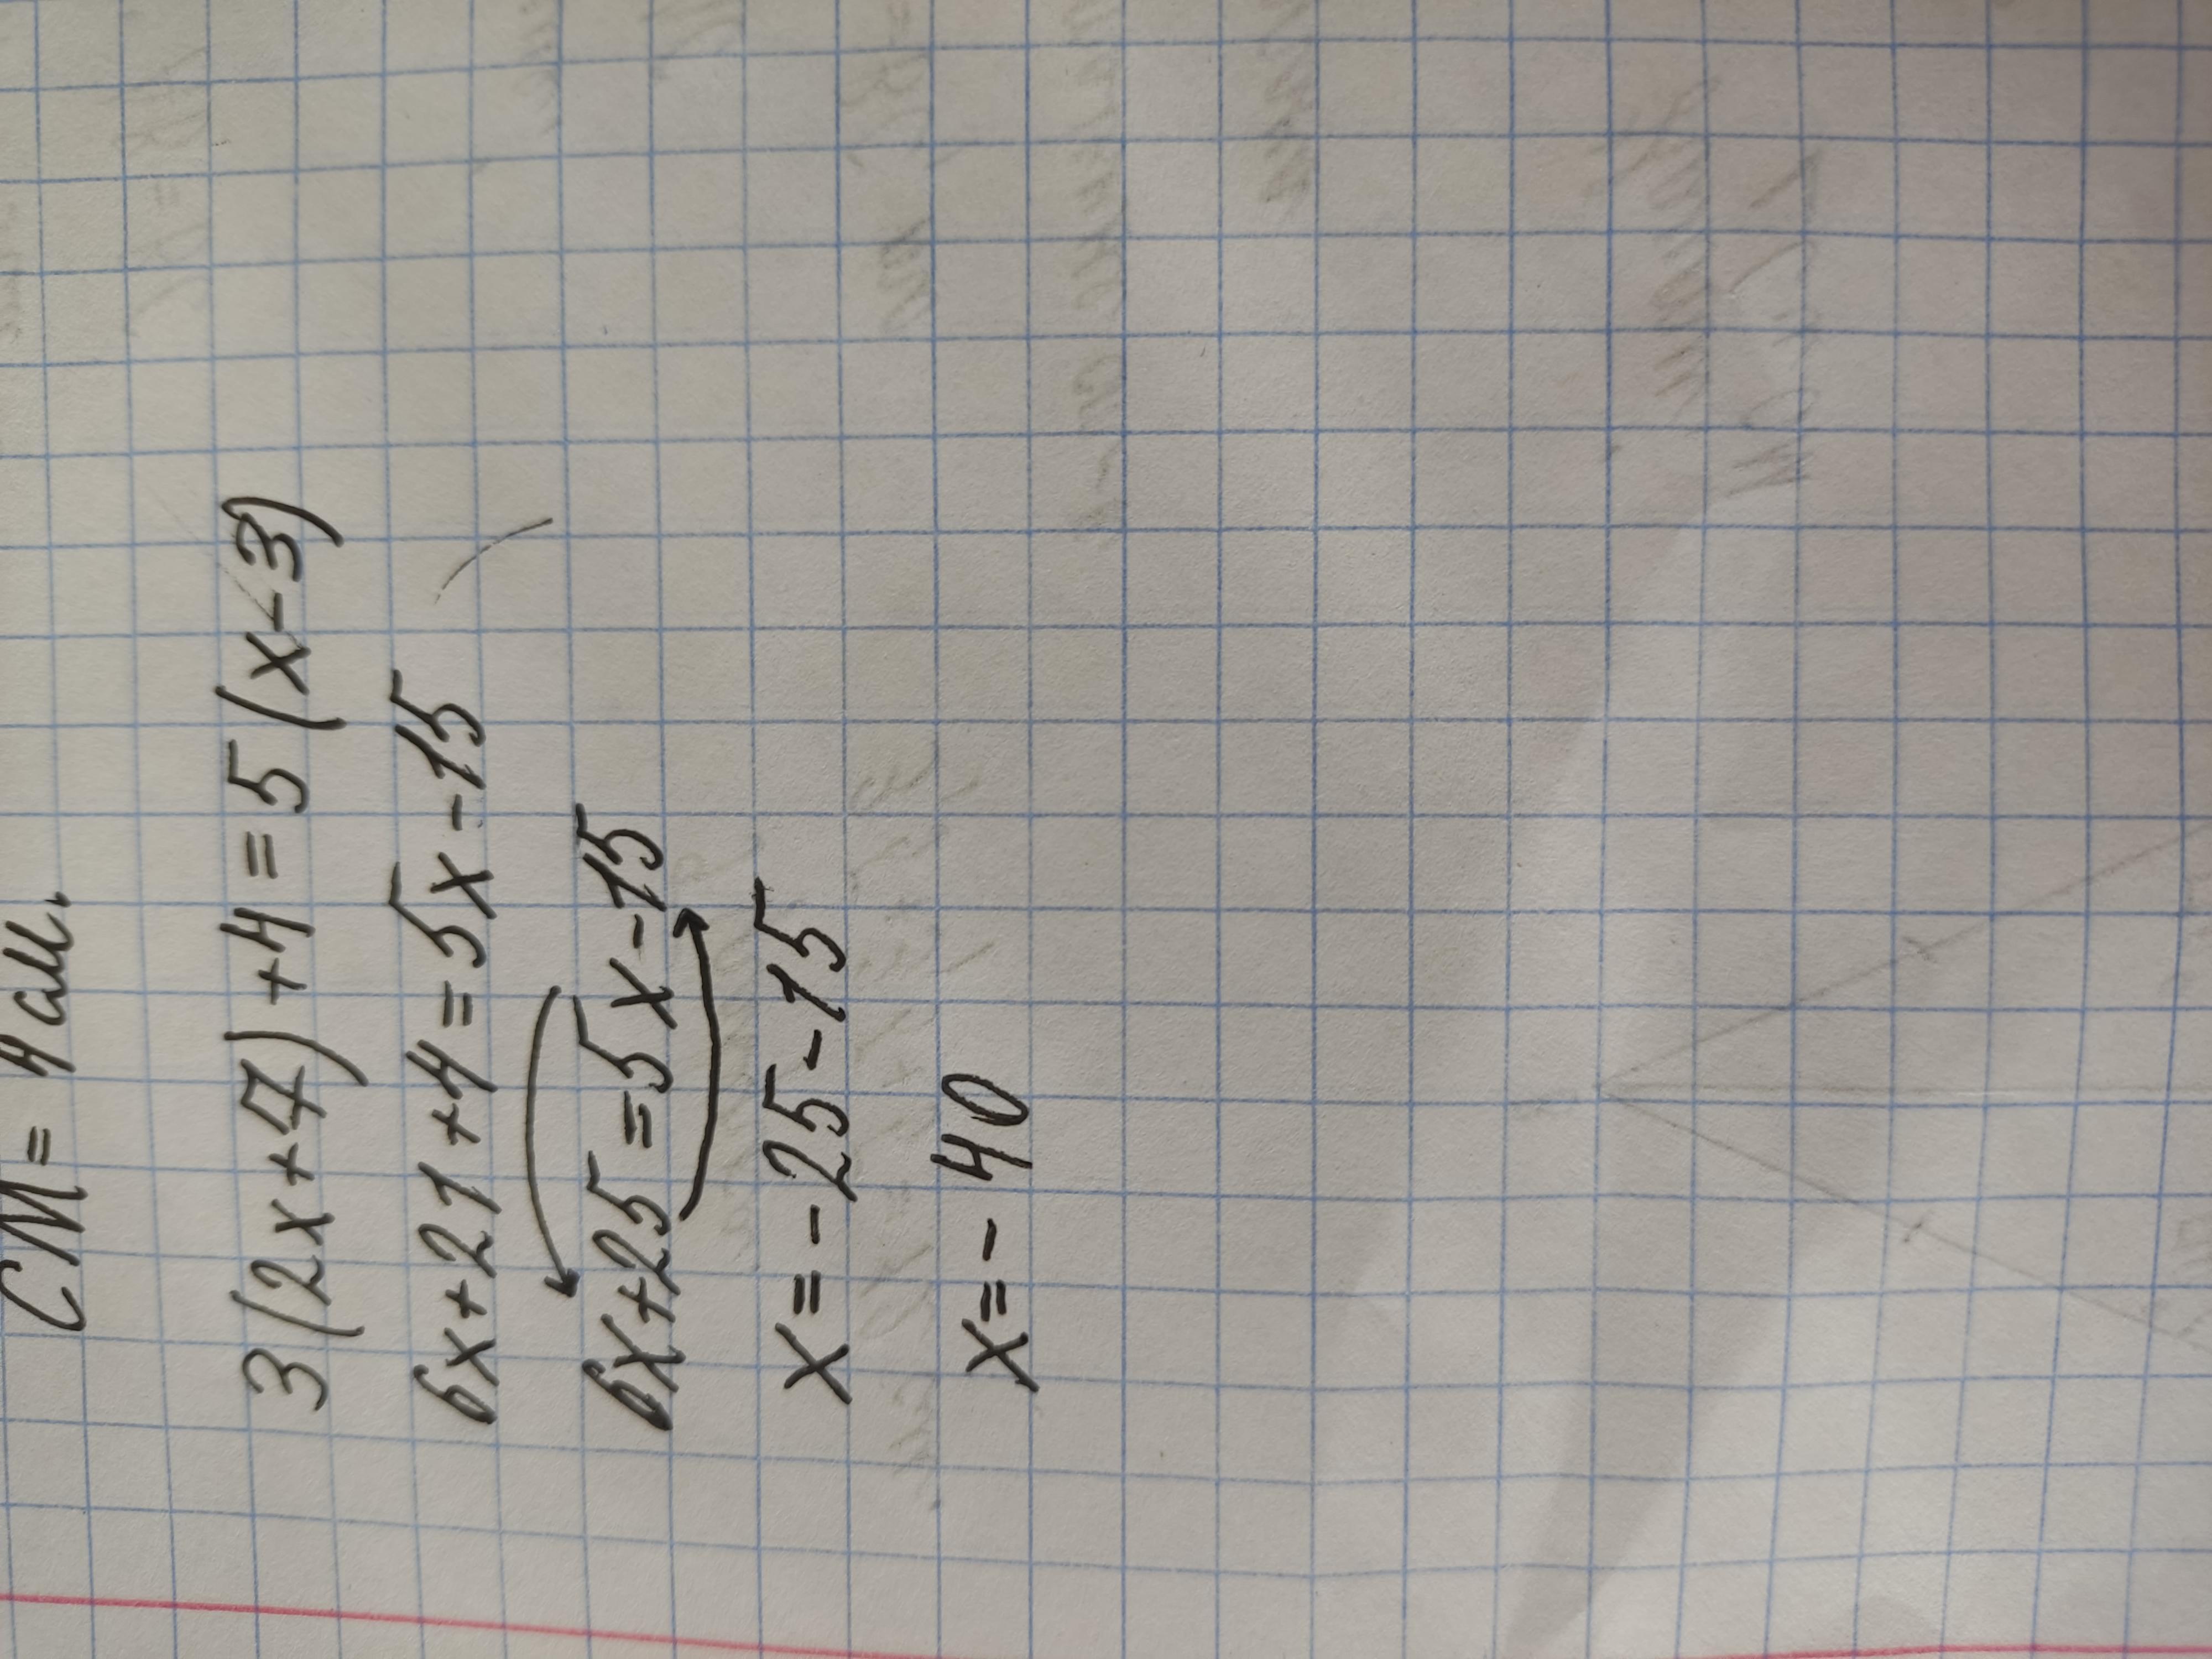 CM = 4 см.
3(2x+7)+4=5(x-3)
6x+21+4=5x-15
6x+25=5x-15
x=-25-15
x=-40